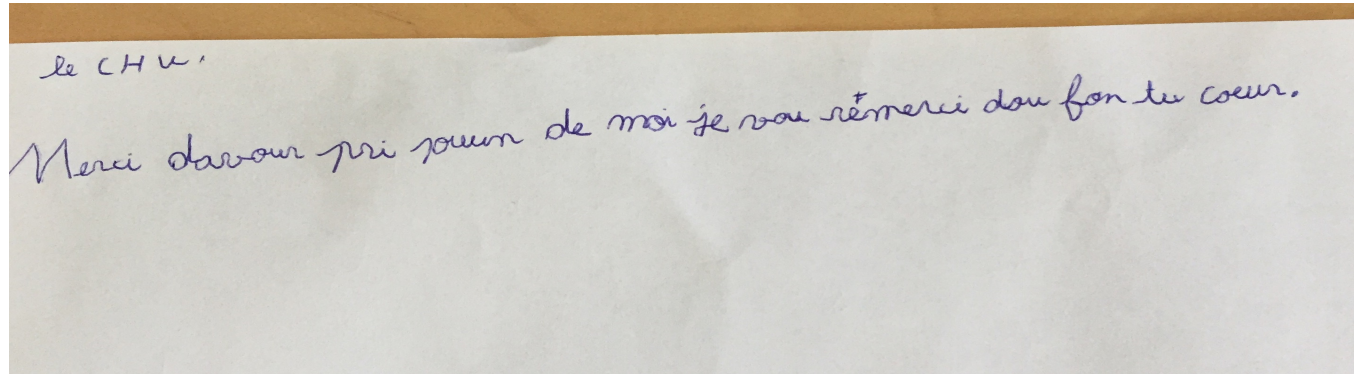 le CHU.
Merci davour pri souin de moi je vou rémerci dou fon tu coeur.